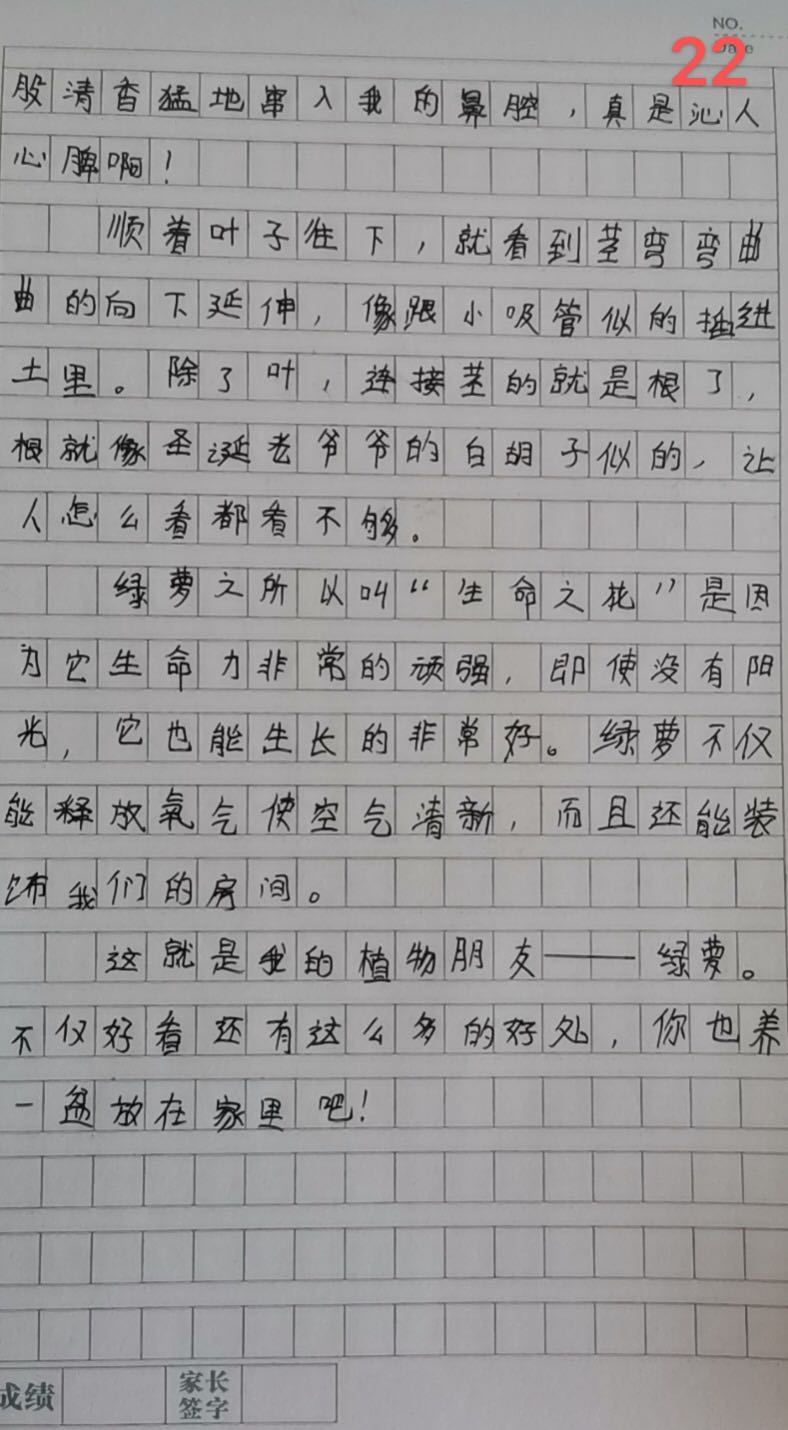 NO.
Date
22
股清香猛地串入我的鼻腔，真是沁人
心脾啊！
顺着叶子往下，就看到茎弯弯曲
曲的向下延伸，像跟小吸管似的插进
土里。除了叶，连接茎的就是根了，
根就像圣诞老爷爷的白胡子似的，让
人怎么看都看不够。
绿萝之所以叫“生命之花”是因
为它生命力非常的顽强，即使没有阳
光，它也能生长的非常好。绿萝不仅
能释放氧气使空气清新，而且还能装
饰我们的房间。
这就是我的植物朋友——绿萝。
不仅好看还有这么多的好处，你也养
一盆放在家里吧！
成绩
家长
签字